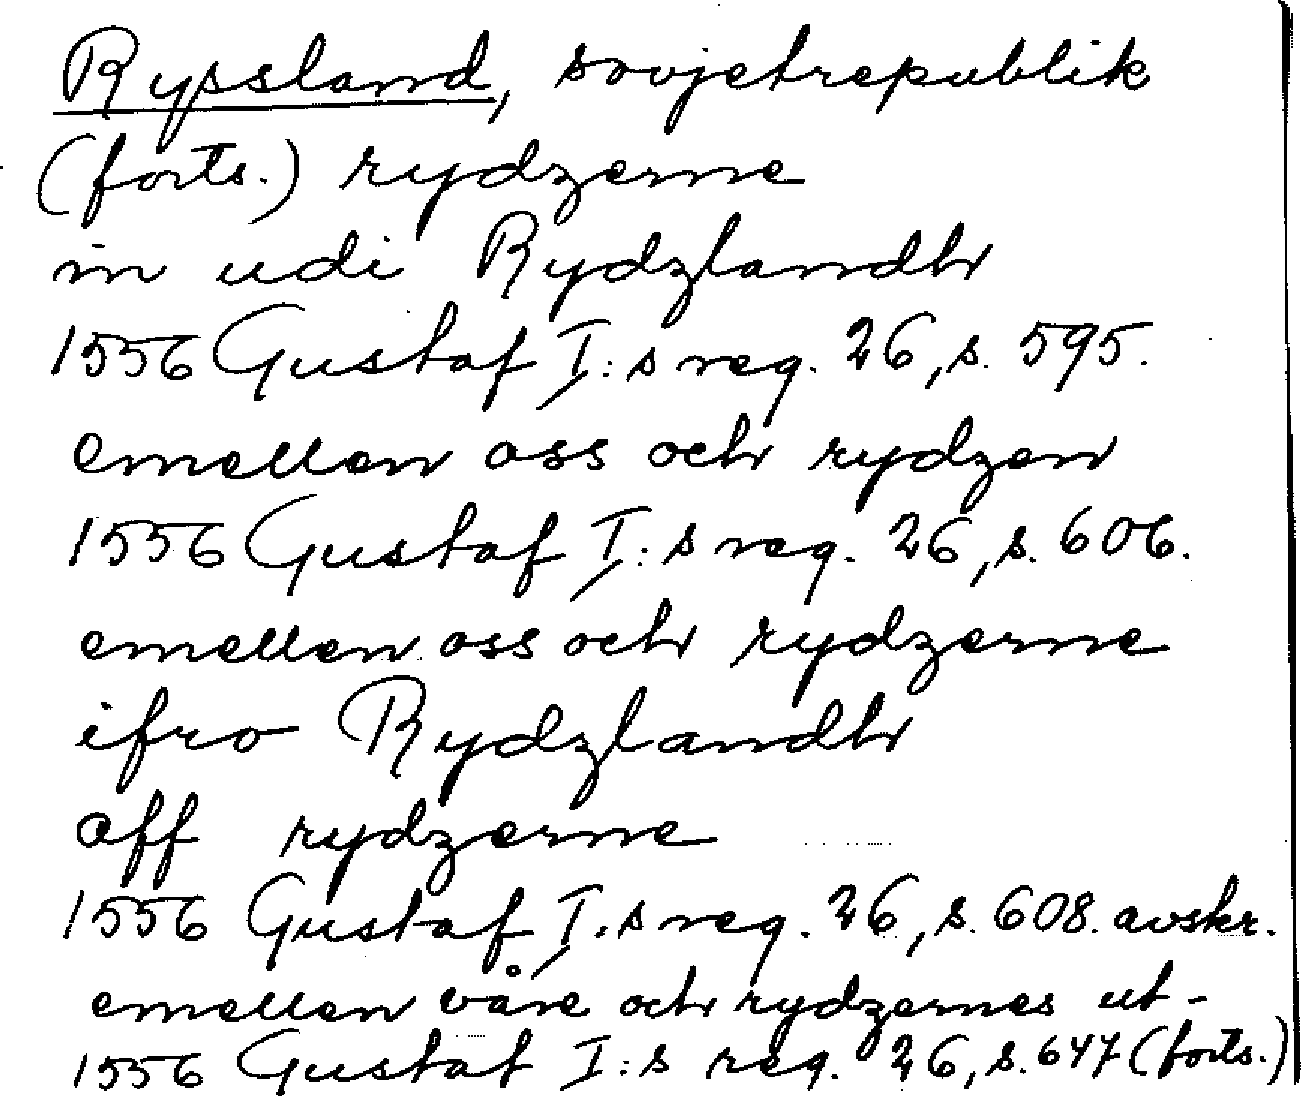 Ryssland, sovjetrepublik
(forts.) rydzerne
in udi Rydzlandh
1556 Gustaf I:s reg. 26, s. 595.
emellen oss och rydzen
1556 Gustaf I:s reg. 26, s. 606.
emellen oss och rydzerne
ifro Rydzlandh
aff rydzerne
1556 Gustaf I:s reg. 26, s. 608. avskr.
emellen våre och rydzernes ut-
1556 Gustaf I:s reg. 26, s. 647 (forts.)